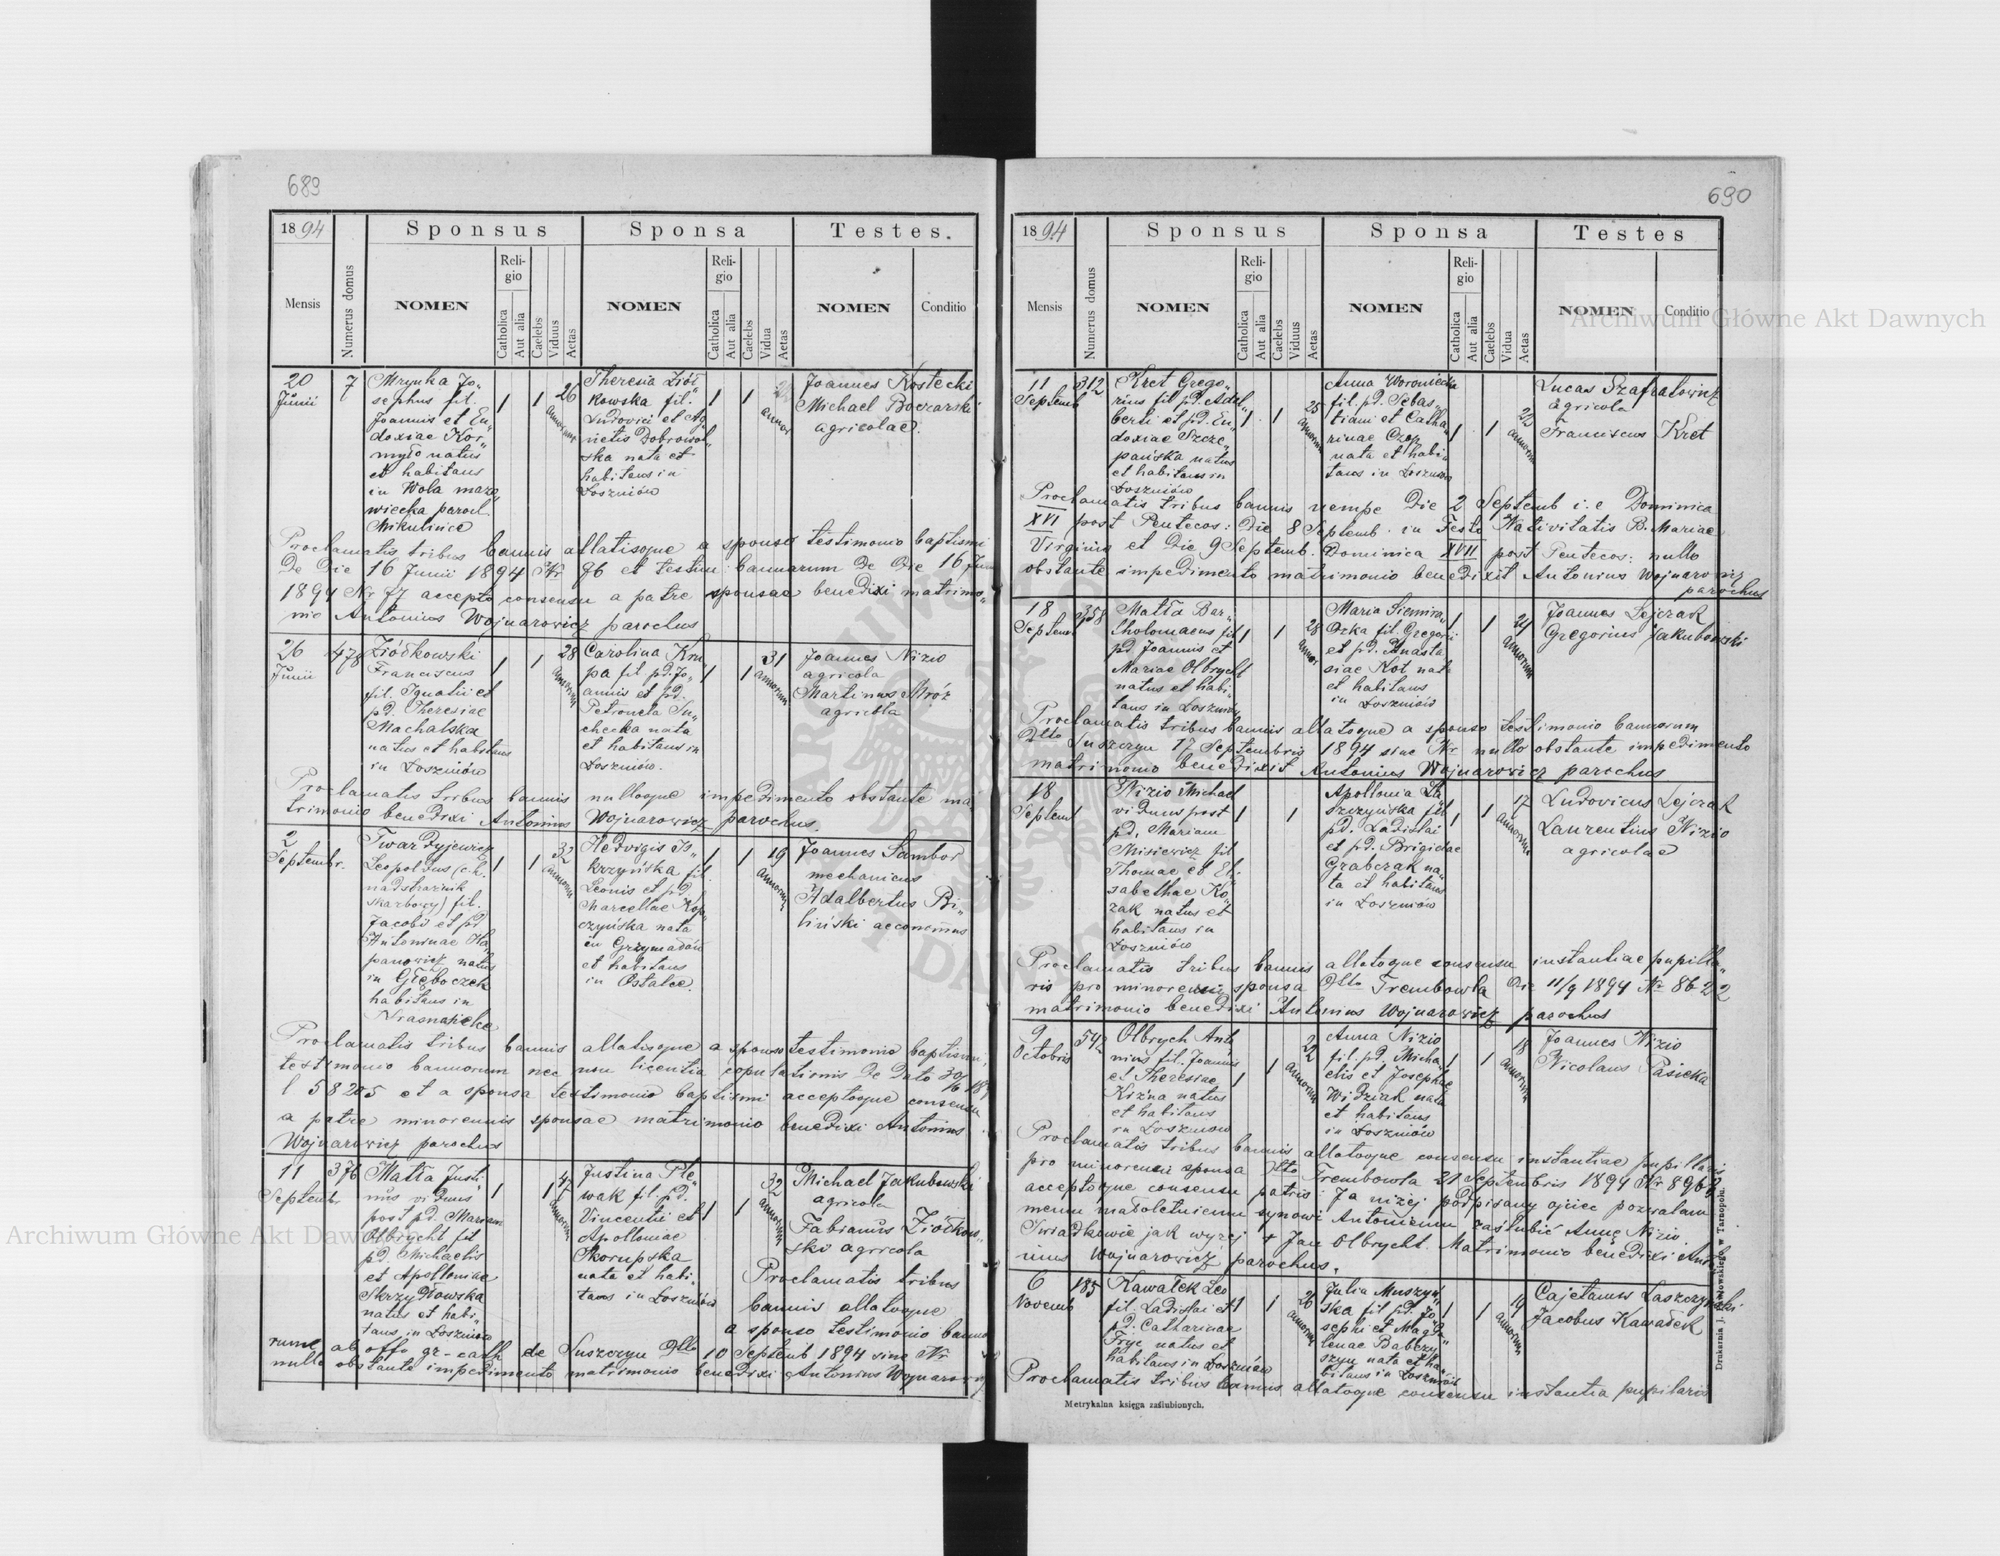 689
1894
Mensis
Numerus domus
Sponsus
NOMEN
Religio
Catholica
Aut alia
Caelebs
Viduus
Aetas
Sponsa
NOMEN
Religio
Catholica
Aut alia
Caelebs
Vidua
Aetas
Testes.
NOMEN
Conditio
20
Junii
7
Mrynka Jo„
sephus fil.
Joannis et Eu„
doxiae Kor„
myło natus
et habitans
in Wola mazo„
wiecka paroch
Mikulince
1
1
26
annorum
Theresia Ziół„
kowska fil.
Ludovici et Ag„
netis Dobrowol„
ska nata et
habitans in
Łoszniów
1
1
annor
Joannes Kostecki
Michael Bovcarski
agricolae.
Proclamatis tribus bannis allatisque a sponso testimonio baptismi
de die 16 Junii 1894 Nr 76 et testim: bannorum de die 16 Junii
1894 Nr 77 accepto consensu a patre sponsae benedixi matrimo„
nio Antonius Wojnarowicz parochus
26
Junii
478
Ziółkowski
Franciscus
fil. Ignatii et
pd. Theresiae
Machalska
natus et habitans
in Łoszniów
1
1
28
annorum
Carolina Kru„
pa fil pd. Jo„
annis et pd.
Petronela Su„
checka nata
et habitans in
Łoszniów.
1
1
31
annorum
Joannes Nizio
agricola
Martinus Mróz
agricola
Proclamatis tribus bannis nulloque impedimento obstante ma„
trimonio benedixi Antonius Wojnarowicz parochus.
2
Septembr.
Twardyjewicz
Leopoldus (c.k.
nadstrażnik
skarbowy) fil.
Jacobi et pd
Antoninae Ha„
panowicz natus
in Głęboczek
habitans in
1
1
32
annorum
Hedvigis Is„
krzyńska fil.
Leonis et pd
Marcellae Kop„
czyńska nata
in Grzymałów
et habitans
in Ostalce.
1
1
19
annorum
Joannes Sambor
mechanicus
Adalbertus Bi„
liński aeconomus
Proclamatis tribus bannis allatisque a sponso testimonio baptismi,
testimonio bannorum nec non licentia copulationis de dato
l 58205 et a sponsa testimonio baptismi acceptoque consensu
a patre minorennis sponsae matrimonio benedixi Antonius
Wojnarowicz parochus
11
Septemb.
376
Matła Justi„
nus viduus
post pd. Mariam
Olbrycht fil
pd. Michaelis
et Apolloniae
Skrzydłowska
natus et habi„
tans in Łoszniów
1
1
47
annorum
Justina Ple„
wak fil. pd.
Vincentii et
Apolloniae
Skorupska
nata et habi„
tans in Łoszniów
1
1
32
annorum
Michael Jakubowski
agricola
Fabianus Ziółkow„
ski agricola
Proclamatis tribus
bannis allatoque
a sponso testimonio banno
rum ab offo gr-cath de Suszczyn ddto 10 Septemb 1894 sine Nr
nullo obstante impedimento matrimonio benedixi Antonius Wojnarowicz
690
1894
Mensis
Numerus domus
Sponsus
NOMEN
Religio
Catholica
Aut alia
Caelebs
Viduus
Aetas
Sponsa
NOMEN
Religio
Catholica
Aut alia
Caelebs
Vidua
Aetas
Testes
NOMEN
Conditio
11
Septemb
312
Kret Grego„
rius fil pd. Adal„
berti et pd. Eu„
doxiae Szcze„
pańska natus
et habitans in
Łoszniów
1
1
25
annorum
Anna Woroniecka
fil. pd. Sebas„
tiani et Catha„
rinae Czop
nata et habi„
tans in Łoszniów
1
1
22
annorum
Lucas Szafralowicz
agricola
Franciscus Kret
Proclamatis tribus bannis nempe die 2 Septemb i.e Dominica
XVI post Pentecos: die 8 Septemb. in Festo Nativitatis B. Mariae
Virginis et die 9 Septemb. Dominica XVII post Pentecos: nullo
obstante impedimento matrimonio benedixit Antonius Wojnarowicz
parochus
18
Septem
358
Matła Bar„
tholomaeus fil
pd Joannis et
Mariae Olbrycht
natus et habi„
tans in Łoszniów
1
1
28
annor
Maria Siemira„
Czka fil. Gregorii
et pd. Anasta
siae Kot nata
et habitans
in Łoszniów
1
1
24
annorum
Joannes Lejczak
Gregorius Jakubowski
Proclamatis tribus bannis allatoque a sponso testimonio bannorum
ddto Suszczyn 17 Septembris 1894 sine Nr nullo obstante impedimento
matrimonio benedixit Antonius Wojnarowicz parochus
18
Septem
Nizio Michael
viduus post
pd. Mariam
Misiewicz fil
Thomae et El„
sabethae Ko„
zak natus et
habitans in
Łoszniów
1
1
Apollonia La„
szczyńska fil
pd. Ladislai
et pd. Brigidae
Grabczak na„
ta et habitans
in Łoszniów
1
1
17
annorum
Ludovicus Lejczak
Laurentius Nizio
agricolae
Proclamatis tribus bannis allatoque consensu instantiae pupilla„
ris pro minorenni sponsa ddto Trembowla die 11/9 1894 No 8622
matrimonio benedixi Antonius Wojnarowicz parochus
9
Octobris
542
Olbrych Anto
nius fil. Joannis
et Theresiae
Kizna natus
et habitans
in Łoszniów
1
1
22
annorum
Anna Nizio
fil. pd. Micha„
elis et Josephae
Widziak nata
et habitans
in Łoszniów
1
1
18
annorum
Joannes Nizio
Nicolaus Pasieka
Proclamatis tribus bannis allatoque consensu instantiae pupillaris
pro minorenni sponsa ddto Trembowla 21 Septembris 1894 Nr 8969
acceptoque consensu patris: Ja niżej podpisany ojciec pozwalam
memu małoletniemu synowi Antoniemu zaślubić Annę Nizio.
Świadkowie jak wyżej + Jan Olbrycht. Matrimonio benedixi Anto„
nius Wojnarowicz parochus.
6
Novemb
185
Kawałek Leo
fil. Ladislai et
pd. Catharinae
Fryc natus et
habitans in Łoszniów
1
1
26
annorum
Julia Muszyń„
ska fil pd. Jo„
sephi et Magda„
lenae Babczy„
szyn nata et ha„
bitans in Łoszniów
1
1
19
annorum
Cajetanus Laszczyński
Jacobus Kawałek
Proclamatis tribus bannis allatoque consensu instantia pupilaris
Metrykalna księga zaślubionych.
Archiwum Główne Akt Dawnych
Archiwum Główne Akt Dawnych